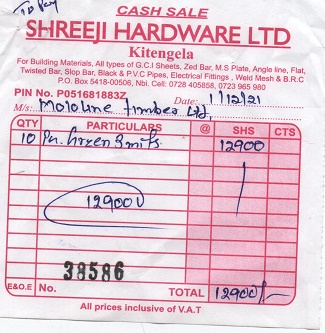 To Pay
CASH SALE
SHREEJI HARDWARE LTD
Kitengela
For Building Materials, All types of G.C.I Sheets, Zed Bar, M.S Plate, Angle line, Flat,
Twisted Bar, Slop Bar, Black & P.V.C Pipes, Electrical Fittings , Weld Mesh & B.R.C
P.O. Box 5418-00506, Nbi. Cell: 0728 405858, 0723 965 980
PIN No. P051681883Z Date: 1/12/21
M/s: Mololine timber Ltd,
QTY PARTICULARS @ SHS CTS
10 Pu. 12900
12900
38586
E&O.E No. TOTAL 12900/-
All prices inclusive of V.A.T